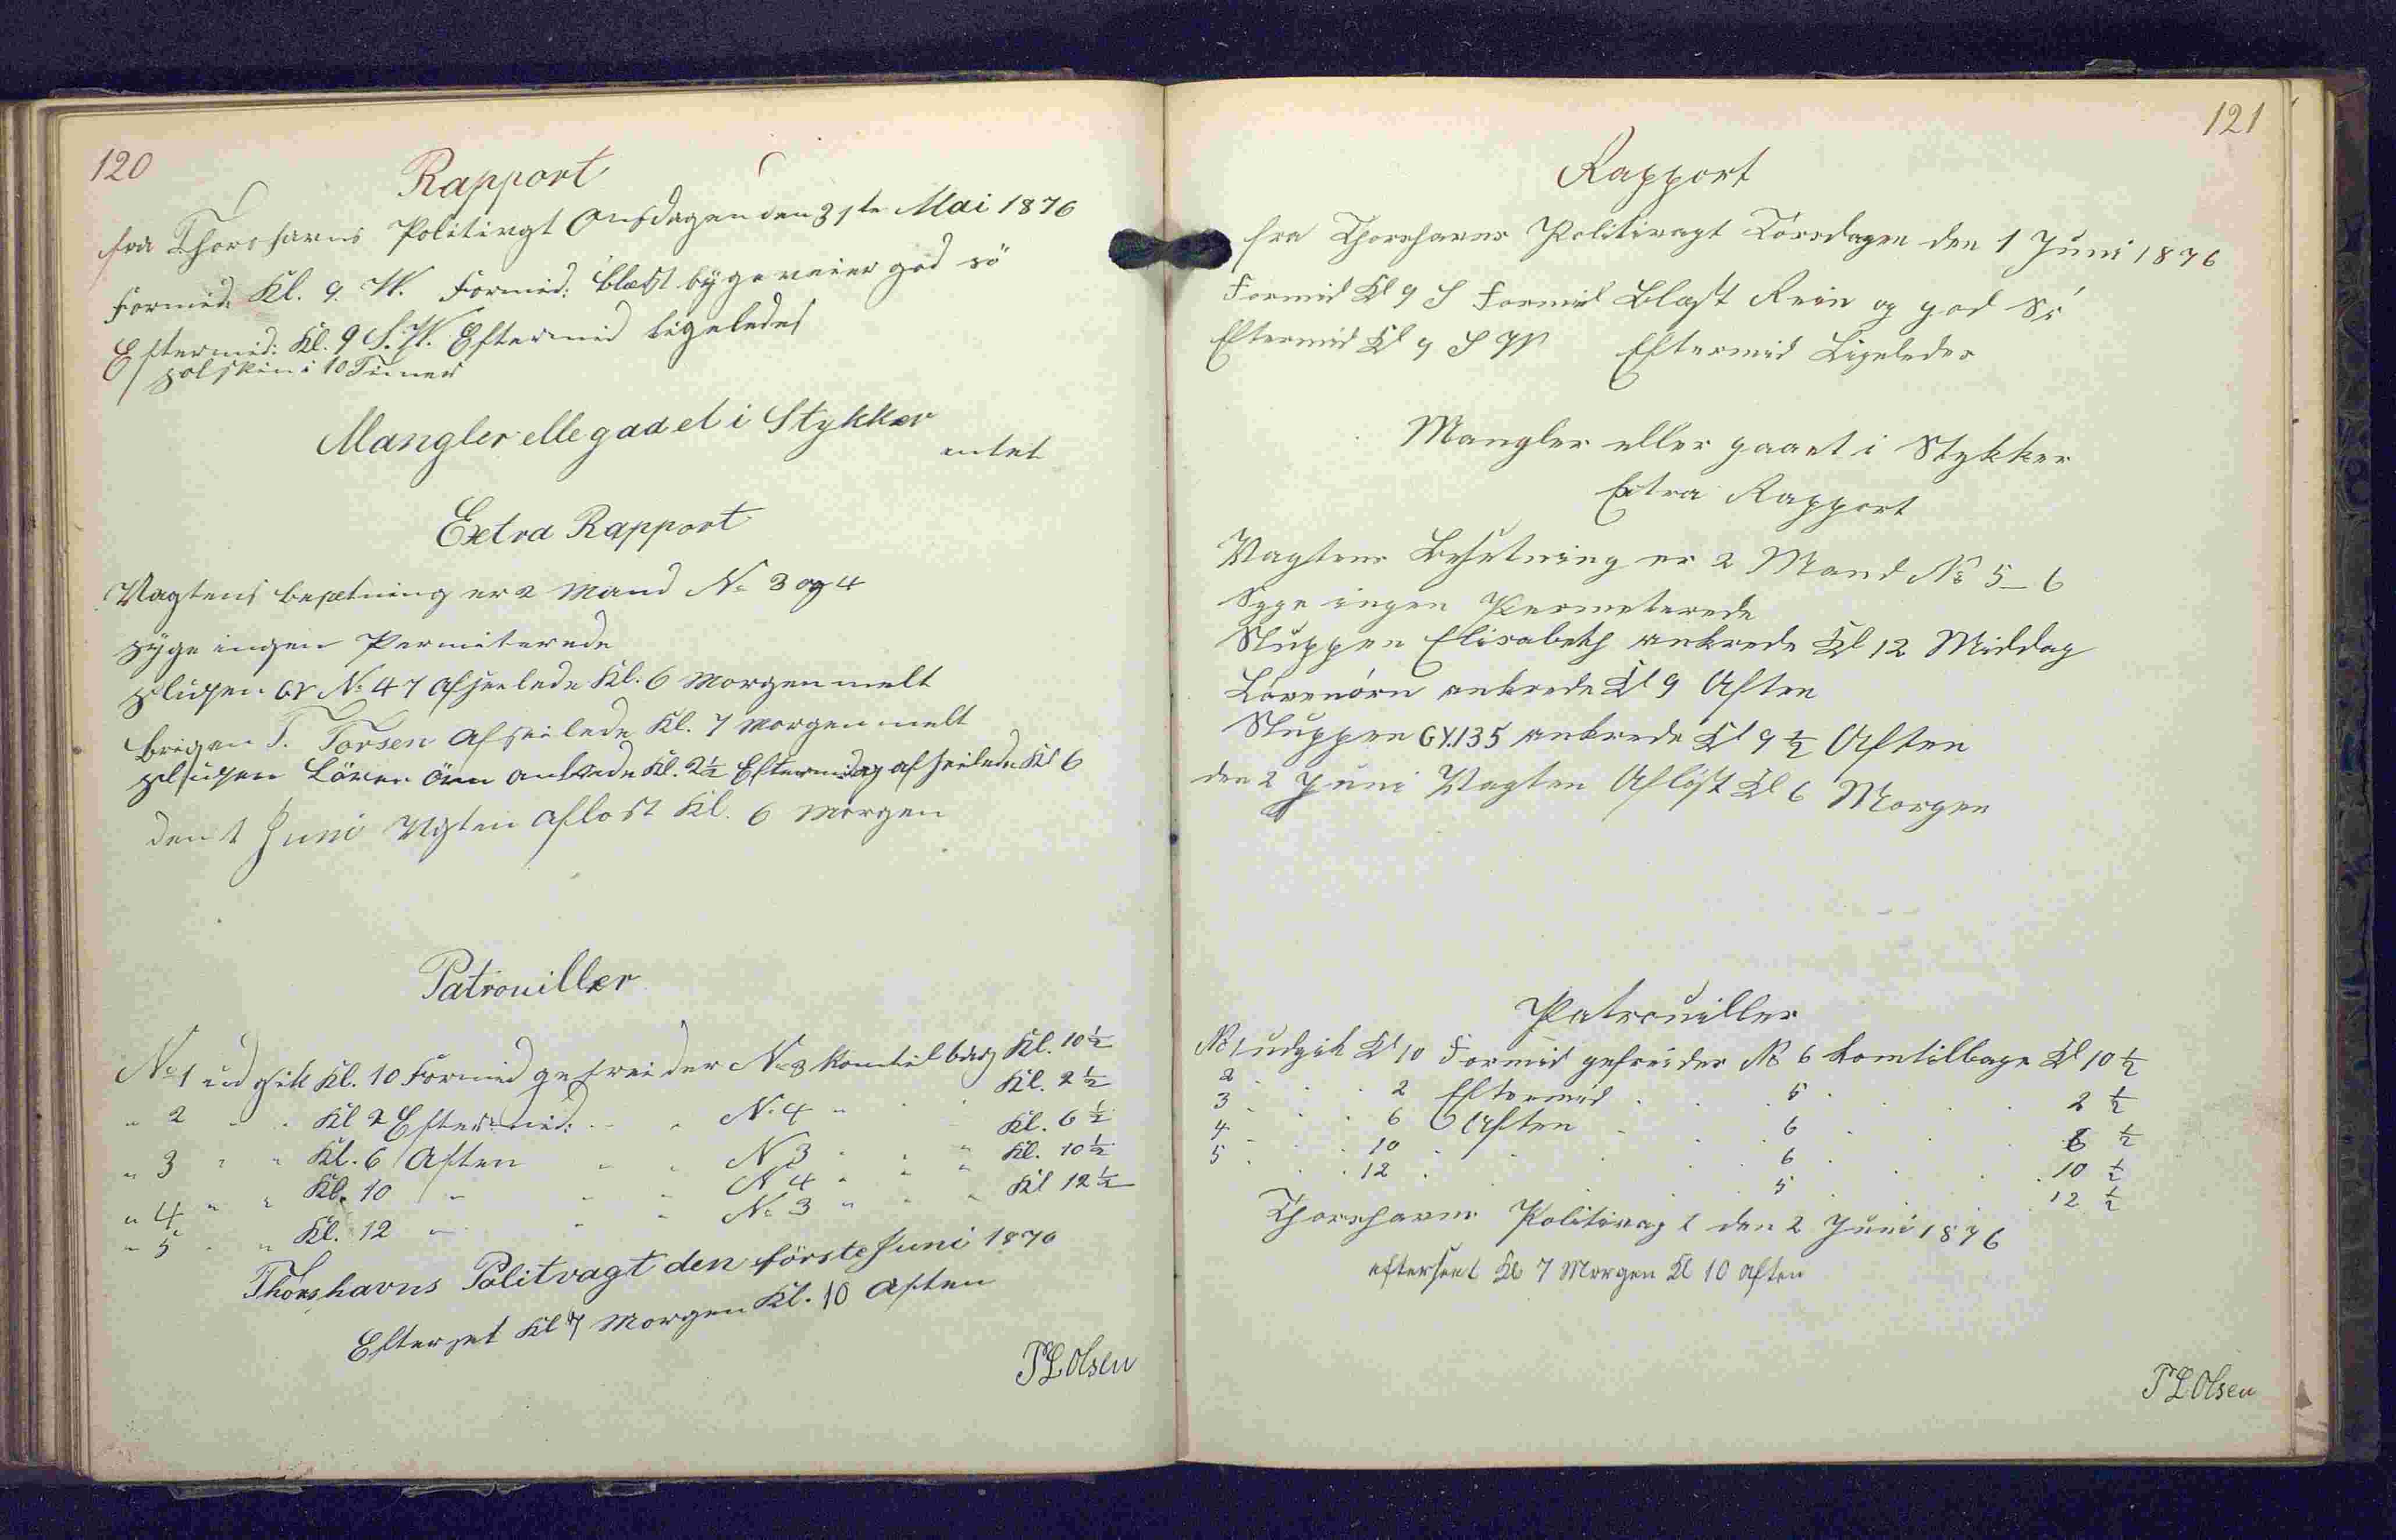 120
Rapport
fra Thorshavns Politivagt Onsdagen den 31te Mai 1876
Formid: Kl. 9. W. Formid: blæst byge veier god sö
Eftermid: Kl. 9 S.W. Eftermid ligeledes
solskin i 10 Timer
Mangler elle gaaet i Stykker
entet
Extra Rapport
Vagtens besetning er 2 Mand No 3 og 4
syge ingen Permiterede
slupen GY No 47 afseilede Kl. 6 Morgen melt
brigen T. Torsen afseilede Kl. 7 Morgen melt
slupen Löven örn ankrede Kl. 2½ Eftermidag afseilede Kl 6
den 1 Juni Vgten aflost Kl. 6 Morgen
Patrouiller
No 1 udgik Kl. 10 Formid gefreider No 3 komtilbag Kl. 10½
" 2 " " Kl 2 Eftermid: " " N. 4 " " " Kl. 2½
" 3 " " Kl. 6 Aften " " N 3 " " " Kl. 6½
" 4 " " Kl. 10 " " " N 4 " " " Kl. 10½
" 5 " " Kl. 12 " " " No 3 " " " Kl 12½
Thorshavns Politvagt den förste Juni 1876
Efterset Kl 7 Morgen Kl. 10 Aften
P L Olsen
121
Rapport
fra Thorshavns Politivagt Torsdagen den 1 Juni 1876
Formid Kl 9 S Formid Blæst Rein og god Sö
Eftermid Kl 9 S W Eftermid Ligeledes
Mangler eller gaaet i Stykker
Extra Rapport
Vagtens Besetning er 2 Mand No 5_6
Syge ingen Permeterede
Sluppen Elisabeth ankrede Kl 12 Middag
Lövenörn ankrede Kl 9 Aften
Sluppen GY.135 ankrede Kl 9½ Aften
den 2 Juni Vagten Aflöst Kl 6 Morgen
Patrouiller
No 1 udgik Kl 10 Formid gefreider No 6 komtilbage Kl 10½
2 . . . 2 Eftermid . . 5 . . . 2½
3 . . . 6 Aften . . 6 . . . 6½
4 . . . 10 . . . 6 . . . 10½
5 . . . 12 . . . 5 . . . 12½
Thorshavns Politivagt den 2 Juni 1876
efterseet Kl 7 Morgen Kl 10 aften
P L Olsen